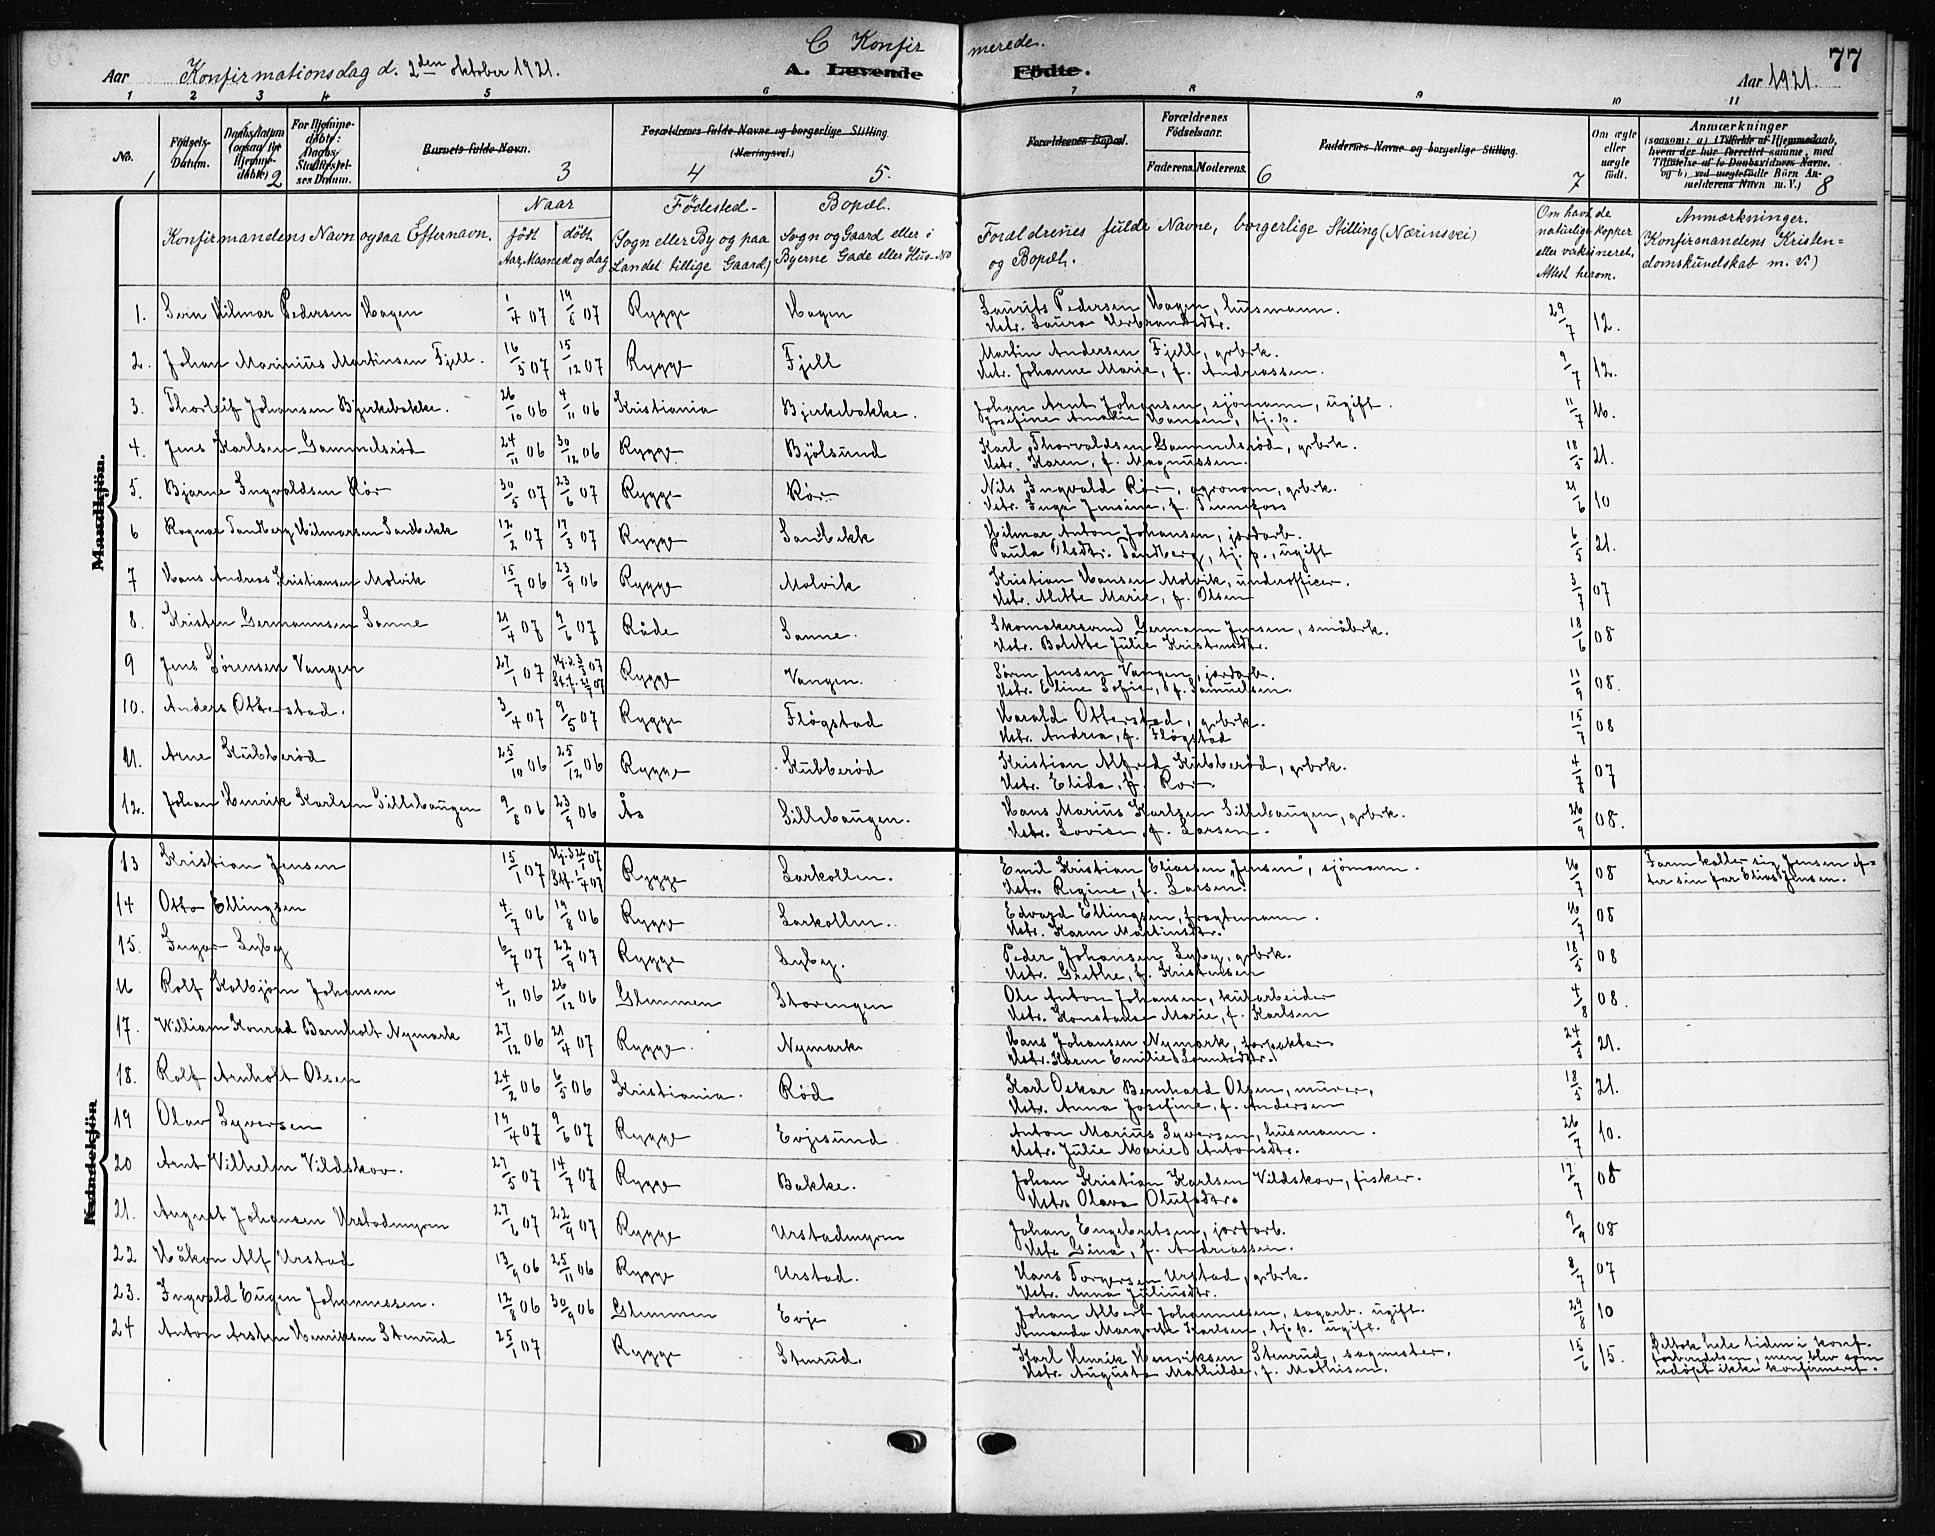 C Konfir merede.
77
Aar Konfirmationsdag d. 2den oktober 1921. A. Levende Fødte. Aar 1921.
1 2 3 4 5 6 7 8 9 10 11
No. Fødsels-Datum. Daabsdatum (ogsaa for Hjemme-døbte) For Hjemme-døbte: Daabs-Stadfæstel-ses Datum. Barnets fulde Navn. Forældrenes fulde Navne og borgerlige Stilling. (Næringsvei.) Forældrenes Bopæl. Forældrenes Fødselsaar. Faderens. Moderens. Faddernes Navne og borgerlige Stilling. Om ægte eller uægte født. Anmærkninger (saasom: a) i Tilfælde af Hjemmedaab, hvem der har forrettet samme, med Tilføielse af to Daabsvidners Navne, og b) ved uægtefødte Børn An-melderens Navn m. V.)
1 2 3 4 5. 6 7 8
Konfirmandens Navn ogsaa Efternavn.
Naar
født døbt
Aar, Maaned og dag
Fødested-
Sogn eller By og paa
Landet tillige Gaard)
Bopæl.
Sogn og Gaard eller i
Byerne Gade eller Hus-No
Foraldrenes fulde Navne, borgerlige Stilling (Nærinsvei)
og Bopæl.
Om havt de
naturlige kopper
eller vaksineret.
Attest herom.
Anmærkninger.
(Konfirmandens Kristen=
domskundskab m. v.)
Mandkjön.
1. Svin Hilmar Pedersen Hagen 1/4 07 19/5 07 Rygge Hagen Laurits Pedersen Hagen, husmann. 29/7 12.
Ustr. Laura Herbrandsdtr.
2. Johan Marinius Martinsen Fjell. 16/5 07 15/12 07 Rygge Fjell Martin Andersen Fjell, grbrk. 9/7 12.
Ustr. Johanne Marie, f. Andreassen.
3. Thorleif Johansen Bjerkebakke. 26/10 06 4/11 06 Kristiania Bjerkebakke. Johan Arnt Johansen, sjömann, ugift. 11/7 16.
Josefine Amalie Hansen, tj. p.
4. Jens Karlsen Gammelsrød 24/11 06 30/12 06 Rygge Bjölsund Karl Thorvaldsen Gammelsrød, grbrk. 18/5 21.
Ustr. Karen, f. Magnussen.
5. Bjarne Ingvaldsen Rör 30/5 07 23/6 07 Rygge Rör Nils Ingvald Rör, agronom, grbrk. 21/6 10
Ustr. Inga Jensine, f.
6 Ragnar Tandberg Hilmarsen Sandbekk 12/2 07 17/3 07 Rygge Sandbekk Hilmar Anton Johansen, jordarb. 6/5 21.
Paula Olsdtr. Tandberg, tj. p., ugift
7 Hans Andreas Kristiansen Molvik 15/7 06 23/9 06 Rygge Molvik Kristian Hansen Molvik, underofficer. 3/7 07
Ustr. Alette Marie, f. Olsen
8. Kristen Germannsen Sanne 21/4 07 9/6 07 Råde Sanne. Skomakersvend Germann Jensen, småbrk. 18/6 08
Ustr. Bolette Julie Kristensdtr.
9 Jens Sørensen Vangen 27/1 07 Hj. d. 3/3 07 Rygge Vangen. Sören Jensen Vangen, jordarb. 11/9 08.
Ustr. Eline Sofie, f. Samuelsen.
10. Anders Otterstad. 3/4 07 9/5 07 Rygge Flögstad Harald Otterstad, grbrk. 15/7 08
Ustr. Andrea, f. Flögstad
11. Arne Kubberød 25/10 06 25/12 06 Rygge Kubberød Kristian Alfred Kubberød, grbrk. 4/7 07
Ustr. Elida, f. Rör.
12. Johan Henrik Karlsen Sillebaugen 9/8 06 23/9 06 Ås Sillebaugen. Hans Marius Karlsen Sillebaugen, grbrk. 26/9 08.
Ustr. Lovise, f. Larsen.
Kvindekjön
13 Kristian Jensen 15/1 07 Rygge Larkollen. Emil Kristian Eliassen „Jensen", sjömann. 16/7 08 Faren kaller sig Jensen ef=
Ustr. Regine, f. Larsen. ter sin far Elias Jensen.
14 Otto Ellingsen 4/7 06 19/8 06 Rygge Larkollen. Edvard Ellingsen, fragtemann. 16/7 08
Ustr. Karen Martinsdtr.
15. Ingar Lyby 6/7 07 22/9 07 Rygge Lyby. Peder Johansen Lyby, grbrk. 18/5 08
Ustr. Grethe, f. Kristensen
16 Rolf Kolbjørn Johansen 4/11 06 26/12 06 Glemmen Storengen Ole Anton Johansen, kularbeider 4/8 08.
Ustr. Konstanse Marie, f. Karlsen
17. William Konrad Barnholt Nymark 27/12 06 21/4 07 Rygge. Nymark Hans Johansen Nymark, forpakter 24/5 21.
Ustr. Karen Emilie
18. Rolf Arnholt Olsen 24/2 06 6/5 06 Kristiania. Rød Karl Oskar Bernhard Olsen, murer, 18/5 21.
Ustr. Anna Josefine, f. Andersen
19 Olav Syversen 19/4 07 9/6 07 Rygge Evjesund Anton Marius Syversen, husmann. 26/7 10.
Ustr. Julie Marie Antonsdtr.
20 Arnt Vilhelm Vildskov. 27/5 07 14/7 07 Rygge Bakke. Johan Kristian Karlsen Vildskov, fisker. 17/7 08
Ustr Olava Olufsdtr.
21. August Johansen Urstadmyren 27/6 07 22/9 07 Rygge Urstadmyren Johan Engebretsen, jordarb. 9/9 08
Ustr Gina, f. Andreassen.
22 Håkon Alf Urstad 13/9 06 25/11 06 Rygge Urstad. Hans Torgersen Urstad, grbrk. 8/7 07
Ustr. Anna Juliusdtr.
23. Ingvald Eugen Johannessen. 12/8 06 30/9 06 Glemmen Evje Johan Albert Johannessen, sagarb. ugift. 29/8 10
Amanda Margrete Karlsen, tj. p. ugift.
24 Anton Arsten Henriksen Stenrud 25/1 07 Rygge Stenrud. Karl Henrik Henriksen Stenrud, sagmester, 15/6 15. Deltok hele tiden i konf.
Ustr. Augusta Mathilde, f. Mathisen. forberedelsen, men blev som
udøpt ikke konfirmeret.